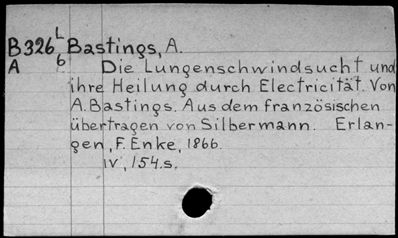 L
B326 Bastings, A.
A 6 Die Lungenschwindsucht und
ihre Heilung durch Electricität. Von
A. Bastings. Aus dem französischen
übertragen von Silbermann. Erlan-
gen, F. Enke, 1866.
IV, 154.s.